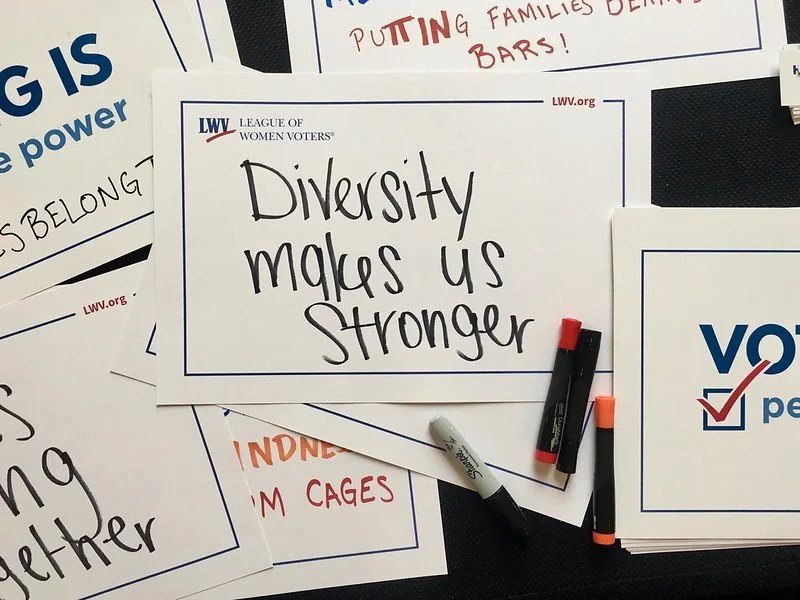 PUTTING FAMILIES BEHIND
BARS!
G IS
e power
S BELONG T
LWV.org
LWV LEAGUE OF
WOMEN VOTERS®
Diversity
makes us
Stronger
LWV.org
s
ng
gether
INDNES
M CAGES
Sharpie
VOT
pe